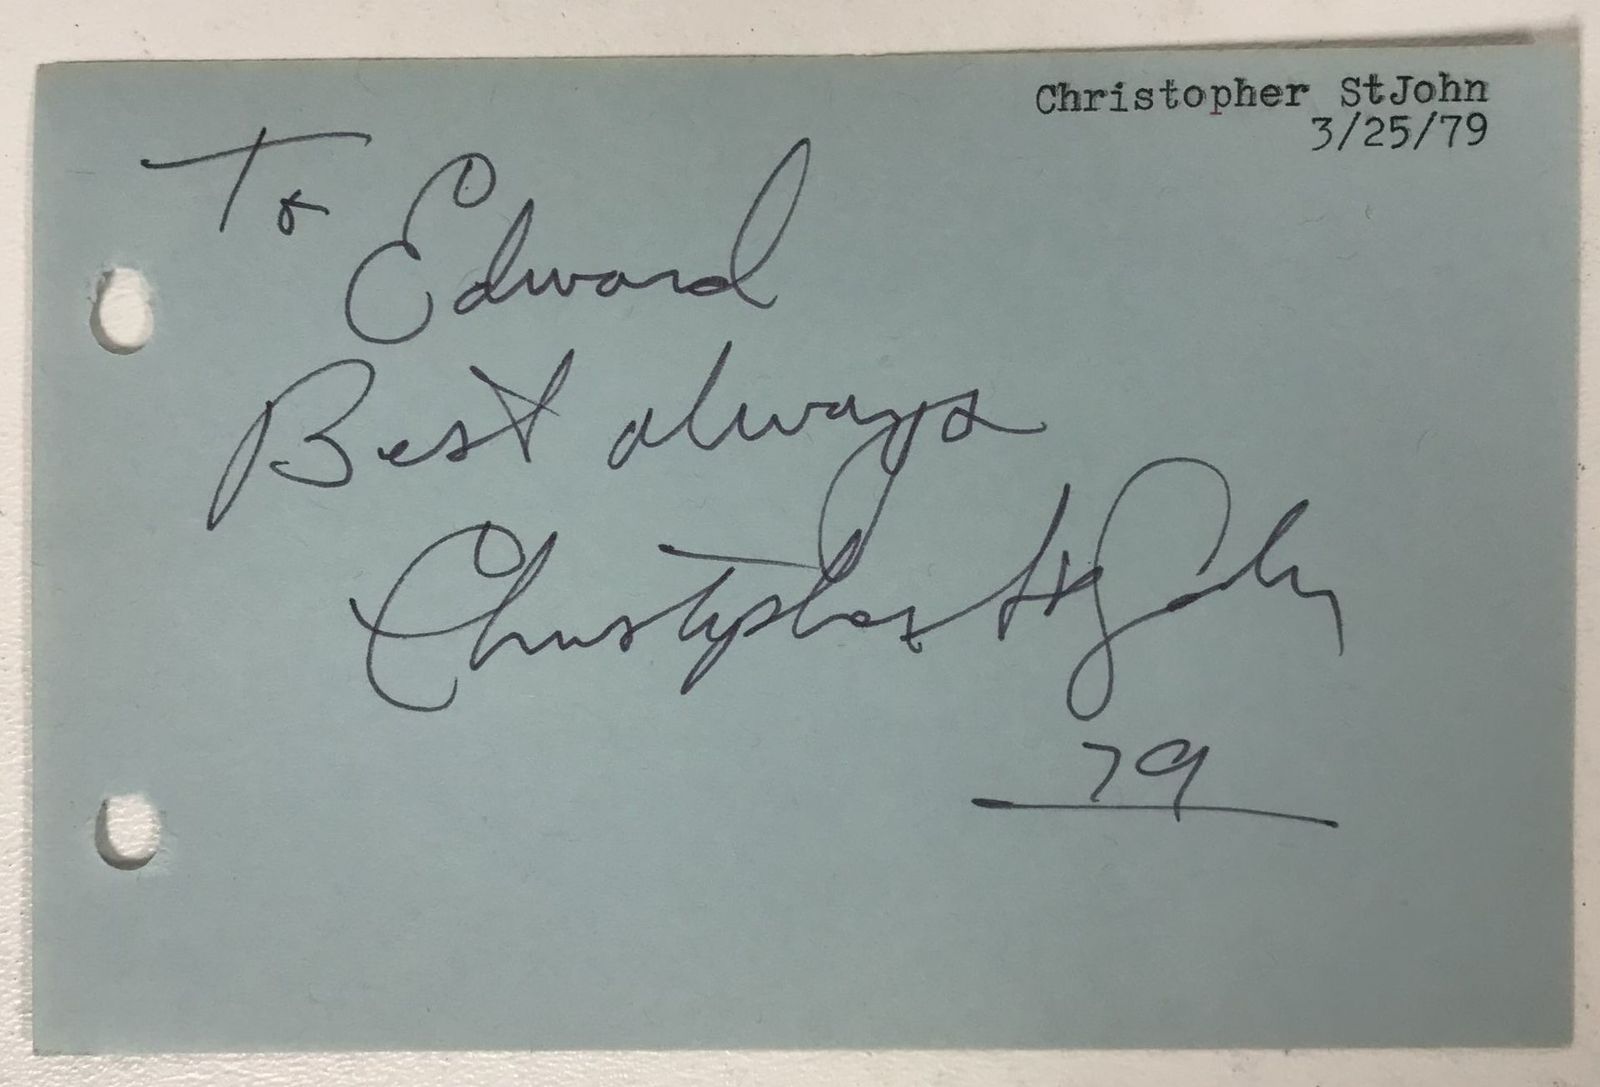 Christopher StJohn
3/25/79
To Edward
Best always
Christopher St John
79